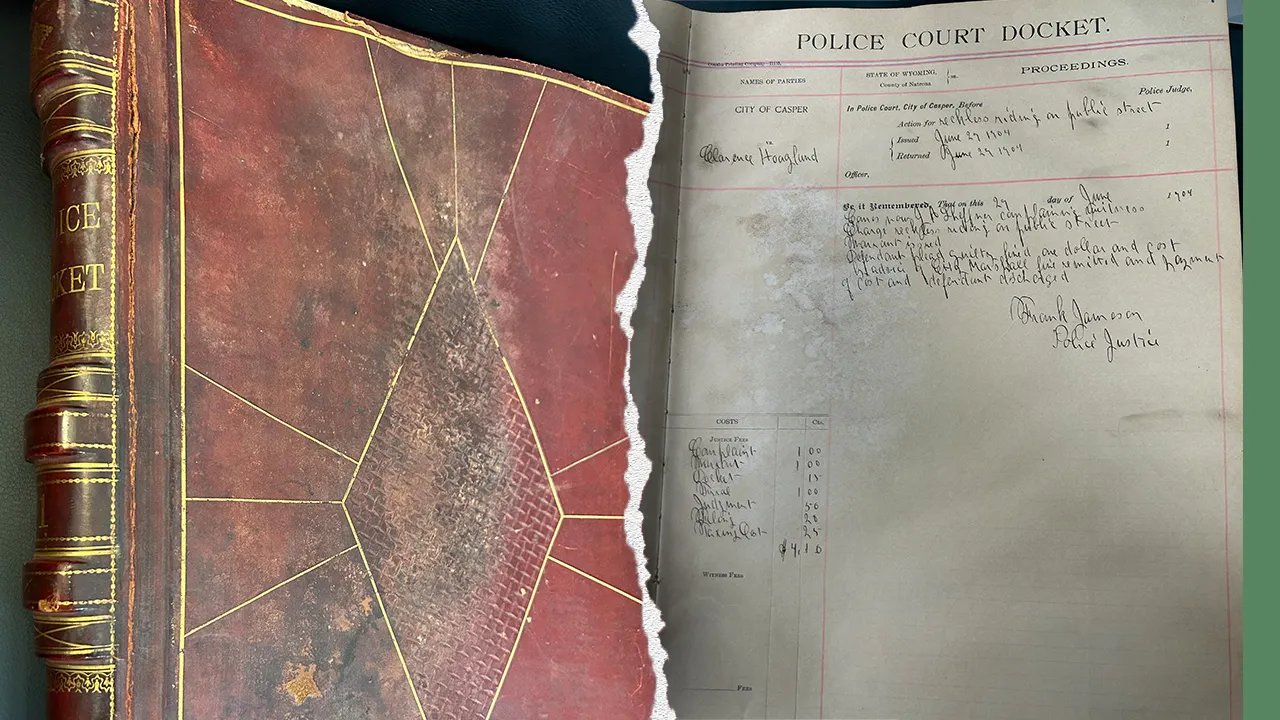 ICE
KET
1
POLICE COURT DOCKET.
NAMES OF PARTIES
STATE OF WYOMING, ss.
County of Natrona.
PROCEEDINGS.
CITY OF CASPER
vs.
Clarence Hoagland
In Police Court, City of Casper, Before
Police Judge,
Action for reckless riding on public street
Issued June 29 1904 1
Returned June 29 1904 1
Officer,
Be it Remembered, That on this 29 day of June 1904
Comes now complaining witness
Charge reckless riding on public street
Warrant issued
Defendant plead guilty fined one dollar and cost
By advice of City Marshall fine remitted and payment
of cost and defendant discharged
Frank Jameson
Police Justice
COSTS
Cts.
JUSTICE FEES
Complaint 1 00
Warrant 1 00
Docket 15
1 00
Judgment 50
Filing 20
Taxing Cost 25
$ 4.10
WITNESS FEES
FEES